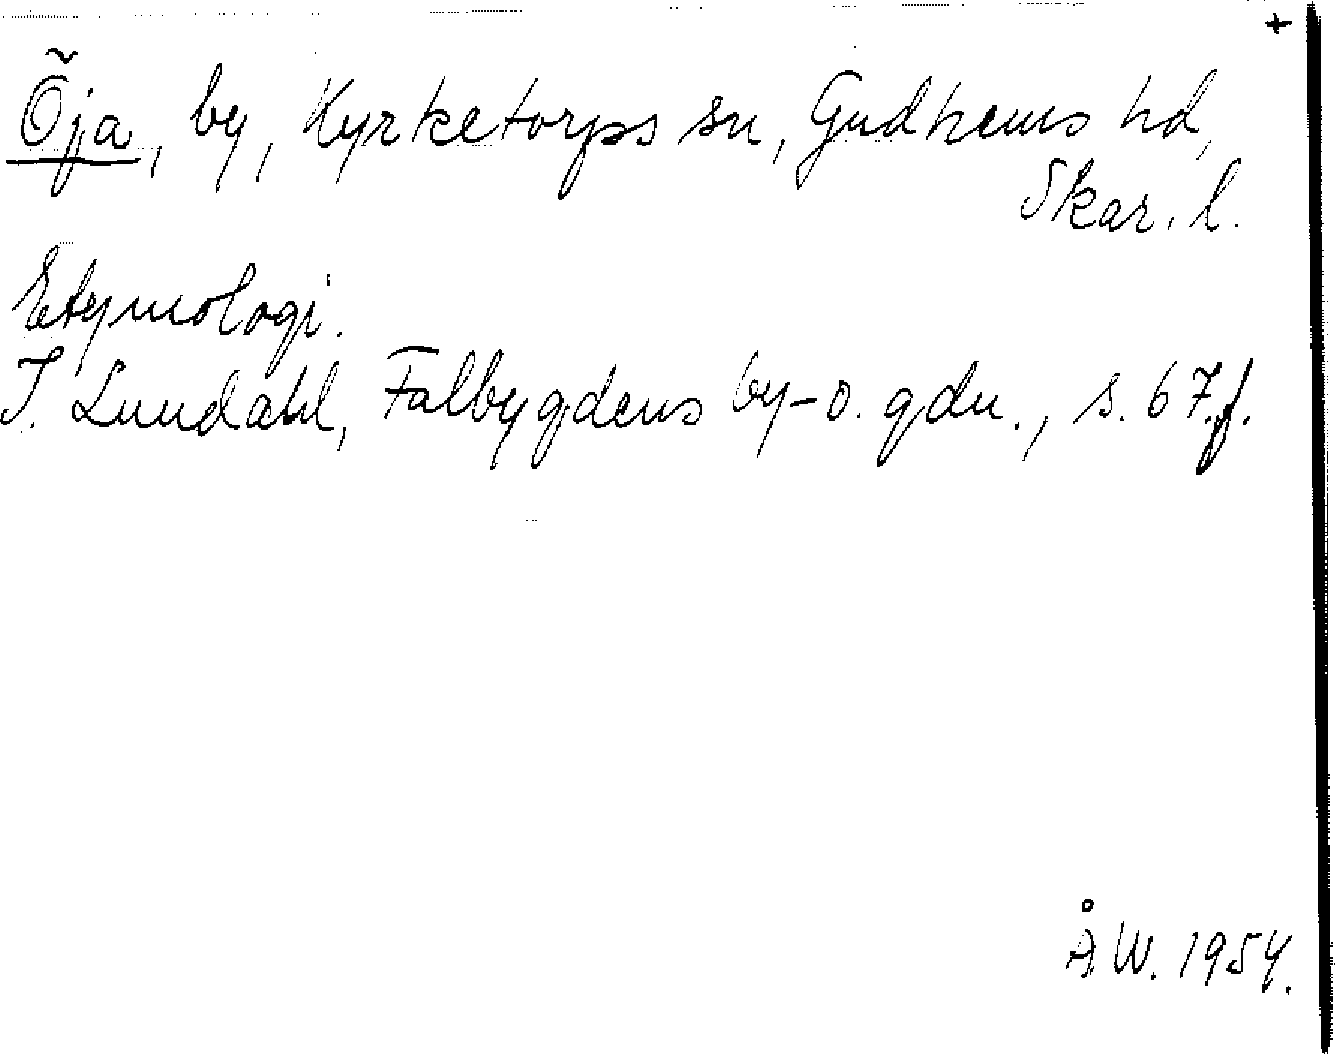 +
Õja, by, Kyrketorps sn, Gudhems hd,
Skar. l.
Etymologi.
I. Lundahl, Falbygdens by- o. gdn., s. 67 f.
ÅW. 1954.